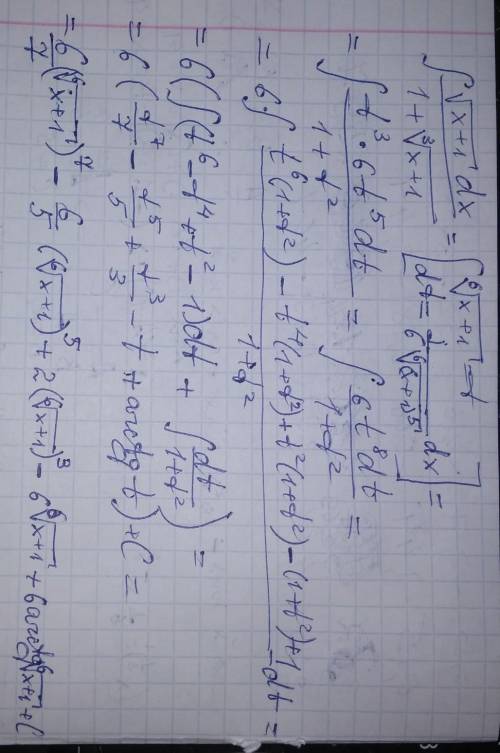 ∫ √(x+1) dx / (1 + ∛(x+1)) = [ ⁶√(x+1) = t ; dt = 1/(6 ⁶√(x+1)⁵) dx ] =
= ∫ t³·6t⁵dt / (1+t²) = ∫ 6t⁸dt / (1+t²) =
= 6∫ (t⁶(1+t²) - t⁴(1+t²) + t²(1+t²) - (1+t²) + 1) / (1+t²) dt =
= 6(∫(t⁶ - t⁴ + t² - 1)dt + ∫ dt/(1+t²)) =
= 6(t⁷/7 - t⁵/5 + t³/3 - t + arctg t) + C =
= 6/7 (⁶√(x+1))⁷ - 6/5 (⁶√(x+1))⁵ + 2(⁶√(x+1))³ - 6 ⁶√(x+1) + 6arctg ⁶√(x+1) + C